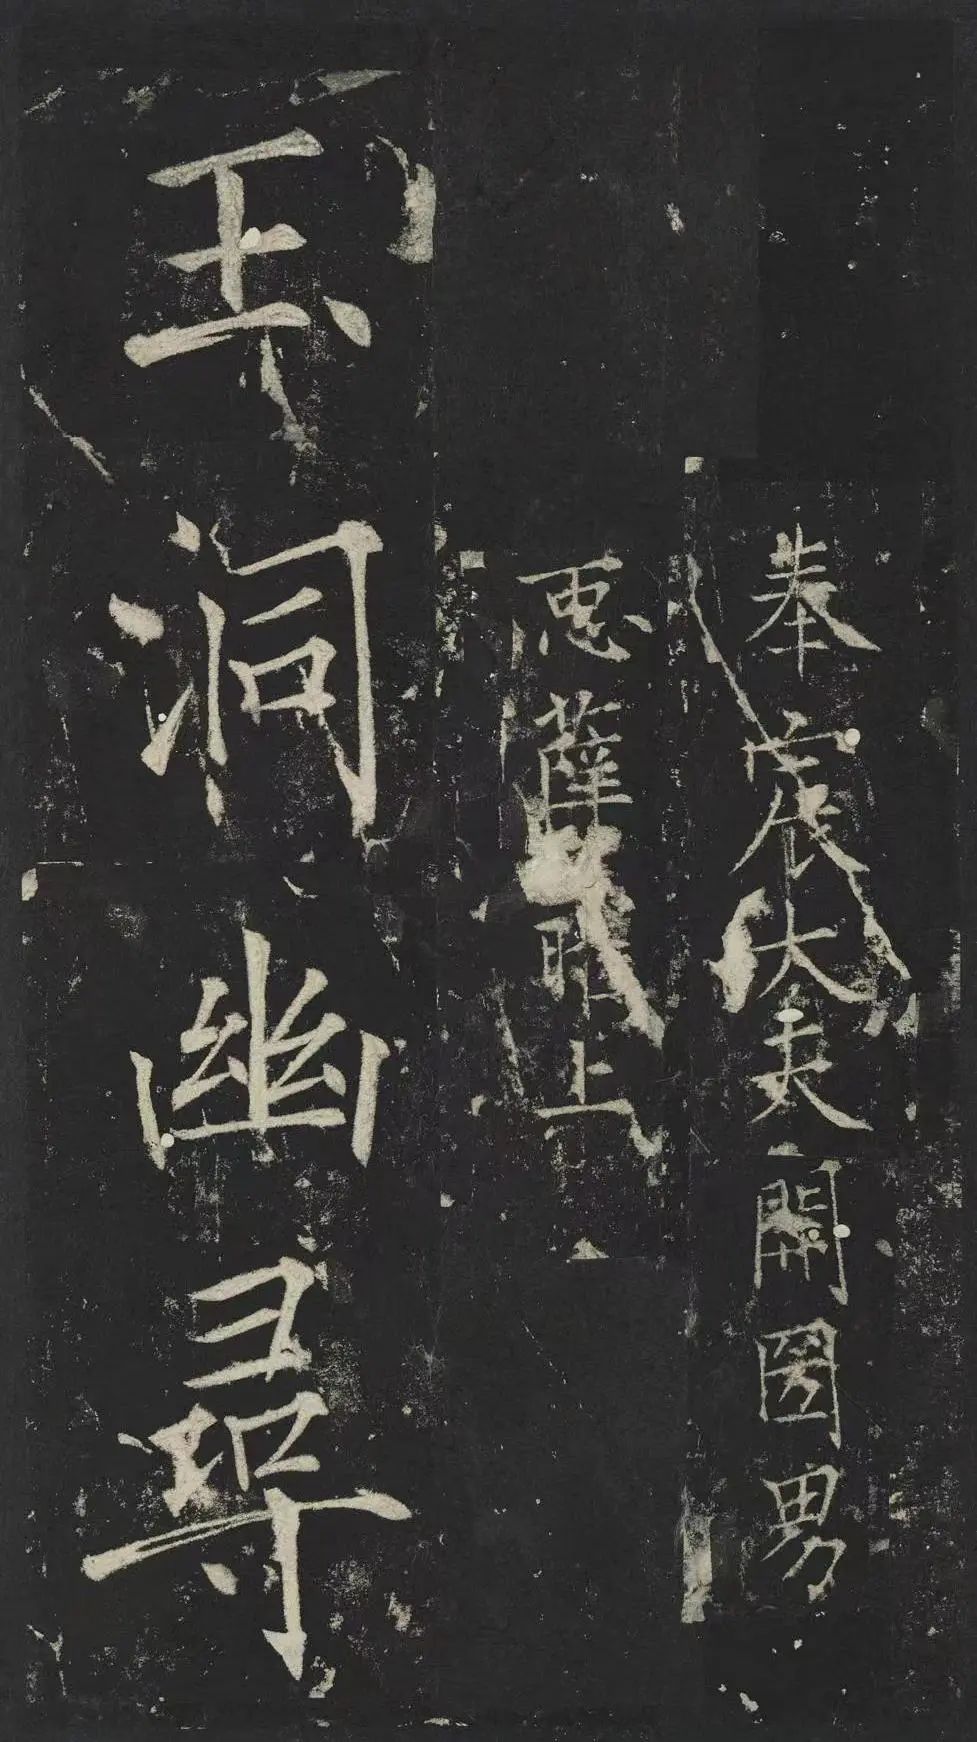 奉宸大夫開圀男
𢘑薛曜上
玉洞幽尋